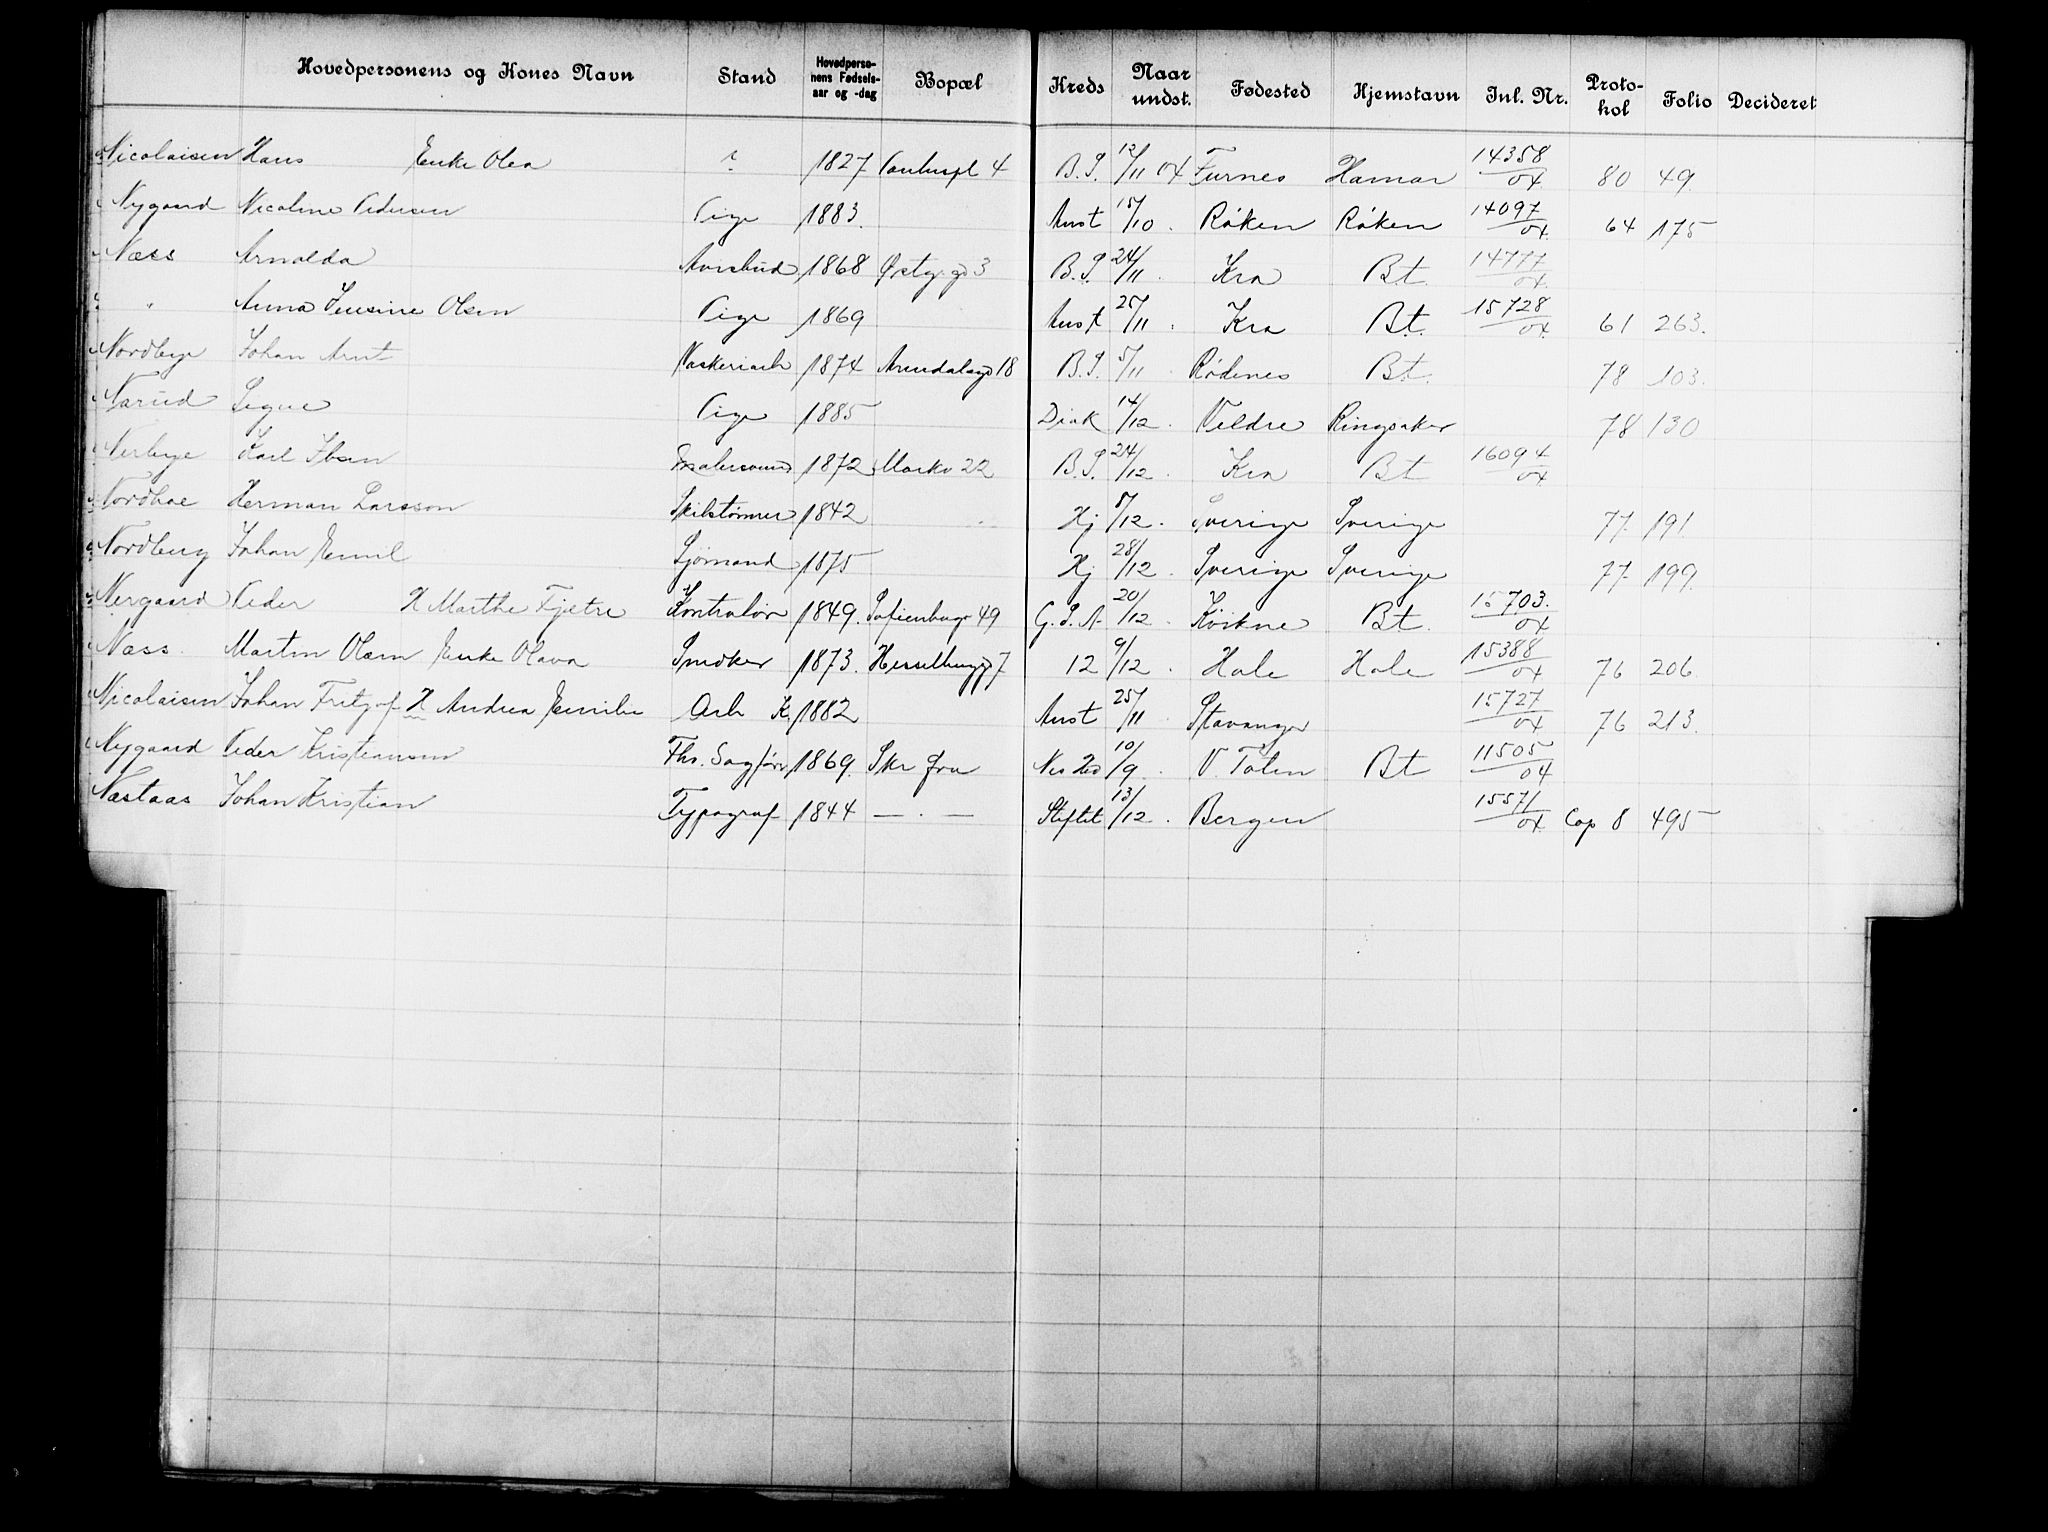 Hovedpersonens og Kones Navn Stand Hovedperso-nens Fødsels-aar og -dag Bopæl Kreds Naar undst. Fødested Hjemstavn Inl. Nr. Proto-kol Folio Decideret
Nicolaisen Hans Enke Olea 1827 4 B.S. 12/11 04 Furnes Hamar 14358/04 80 49
Nygaard Nicoline Pedersen Pige 1883. Anst 15/10. Røken Røken 14097/04. 64 175
Næss Arnolda Avisbud 1868 Østg.gd 3 B.S. 24/11. Kra Bt. 14777/04.
" Anna Jensine Olsen Pige 1869 Anst 25/11. Kra Bt. 15728/04 61 263.
Nordbye Johan Arnt Vaskeriarb 1874 Arendalsgd 18 B.S. 5/11 Rødenes Bt. 78 103.
Narud Signe Pige 1885 Diak 14/12. Veldre Ringsaker 78 130
Nerbye Karl Ibsen Malersvend 1872 Markv 22 B.S. 24/12. Kra Bt 16094/04
Nordhae Herman Larsson 1842 Hj 8/12. Sverige Sverige 77. 191
Nordberg Johan Emil Sjømand 1875 Hj 28/12. Sverige Sverige 77. 199.
Nergaard Peder H Marthe Fjetre Kontrolør 1849. Sofienbergr 49 G.S.A. 20/12. Kvikne Bt. 15703./04
Næss. Martin Olsen Enke Olava Snedker 1873. Hesselbergsgd 7 12 9/12. Hole Hole 15388/04 76 206
Nicolaisen Johan Fritjof H Andrea Emilie Arb K. 1882 Anst 25/11. Stavanger 15727/04 76 213.
Nygaard Peder Kristiansen Fhv. Sagfører 1869. Nes 10/9. V. Toten Bt 11505/04
Næstaas Johan Kristian Typograf 1844 — . — Stiftet 13/12. Bergen 15571/04 Cop 8 495